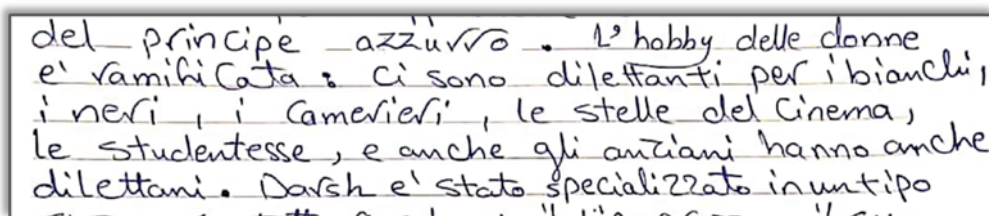 del principe azzurro. L'hobby delle donne
e' ramificata: ci sono dilettanti per i bianchi,
i neri, i camerieri, le stelle del Cinema,
le studentesse, e anche gli anziani hanno anche
dilettani. Darsh e' stato specializzato in un tipo